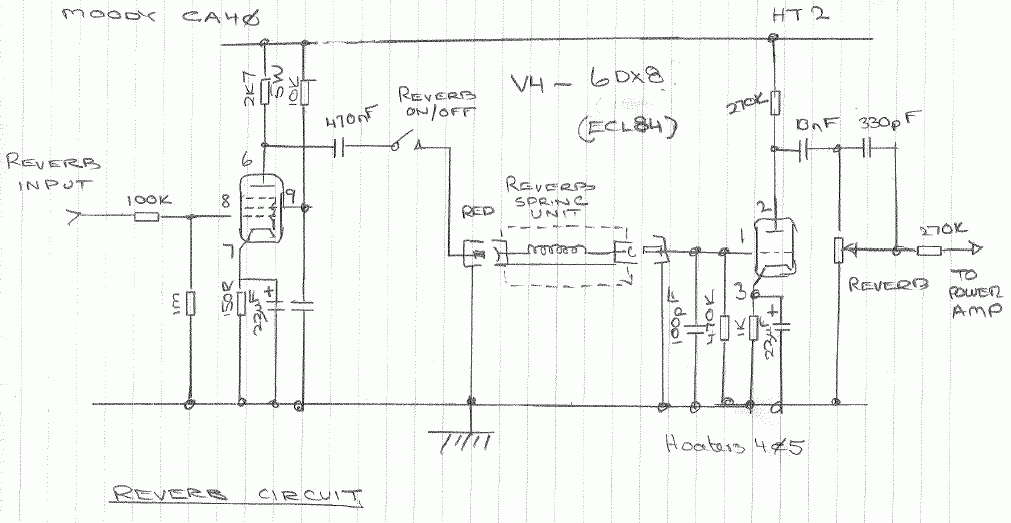 MOODY GA40
HT2
V4 - 6DX8
(ECL84)
2K7
5W
10K
470nF
REVERB
ON/OFF
270K
10nF
330pF
REVERB
INPUT
100K
6
8
9
7
RED
REVERB
SPRING
UNIT
2
1
3
270K
REVERB
TO
POWER
AMP
1M
150R
22µF
+
100pF
470K
1K
22µF
+
Heaters 4&5
REVERB CIRCUIT